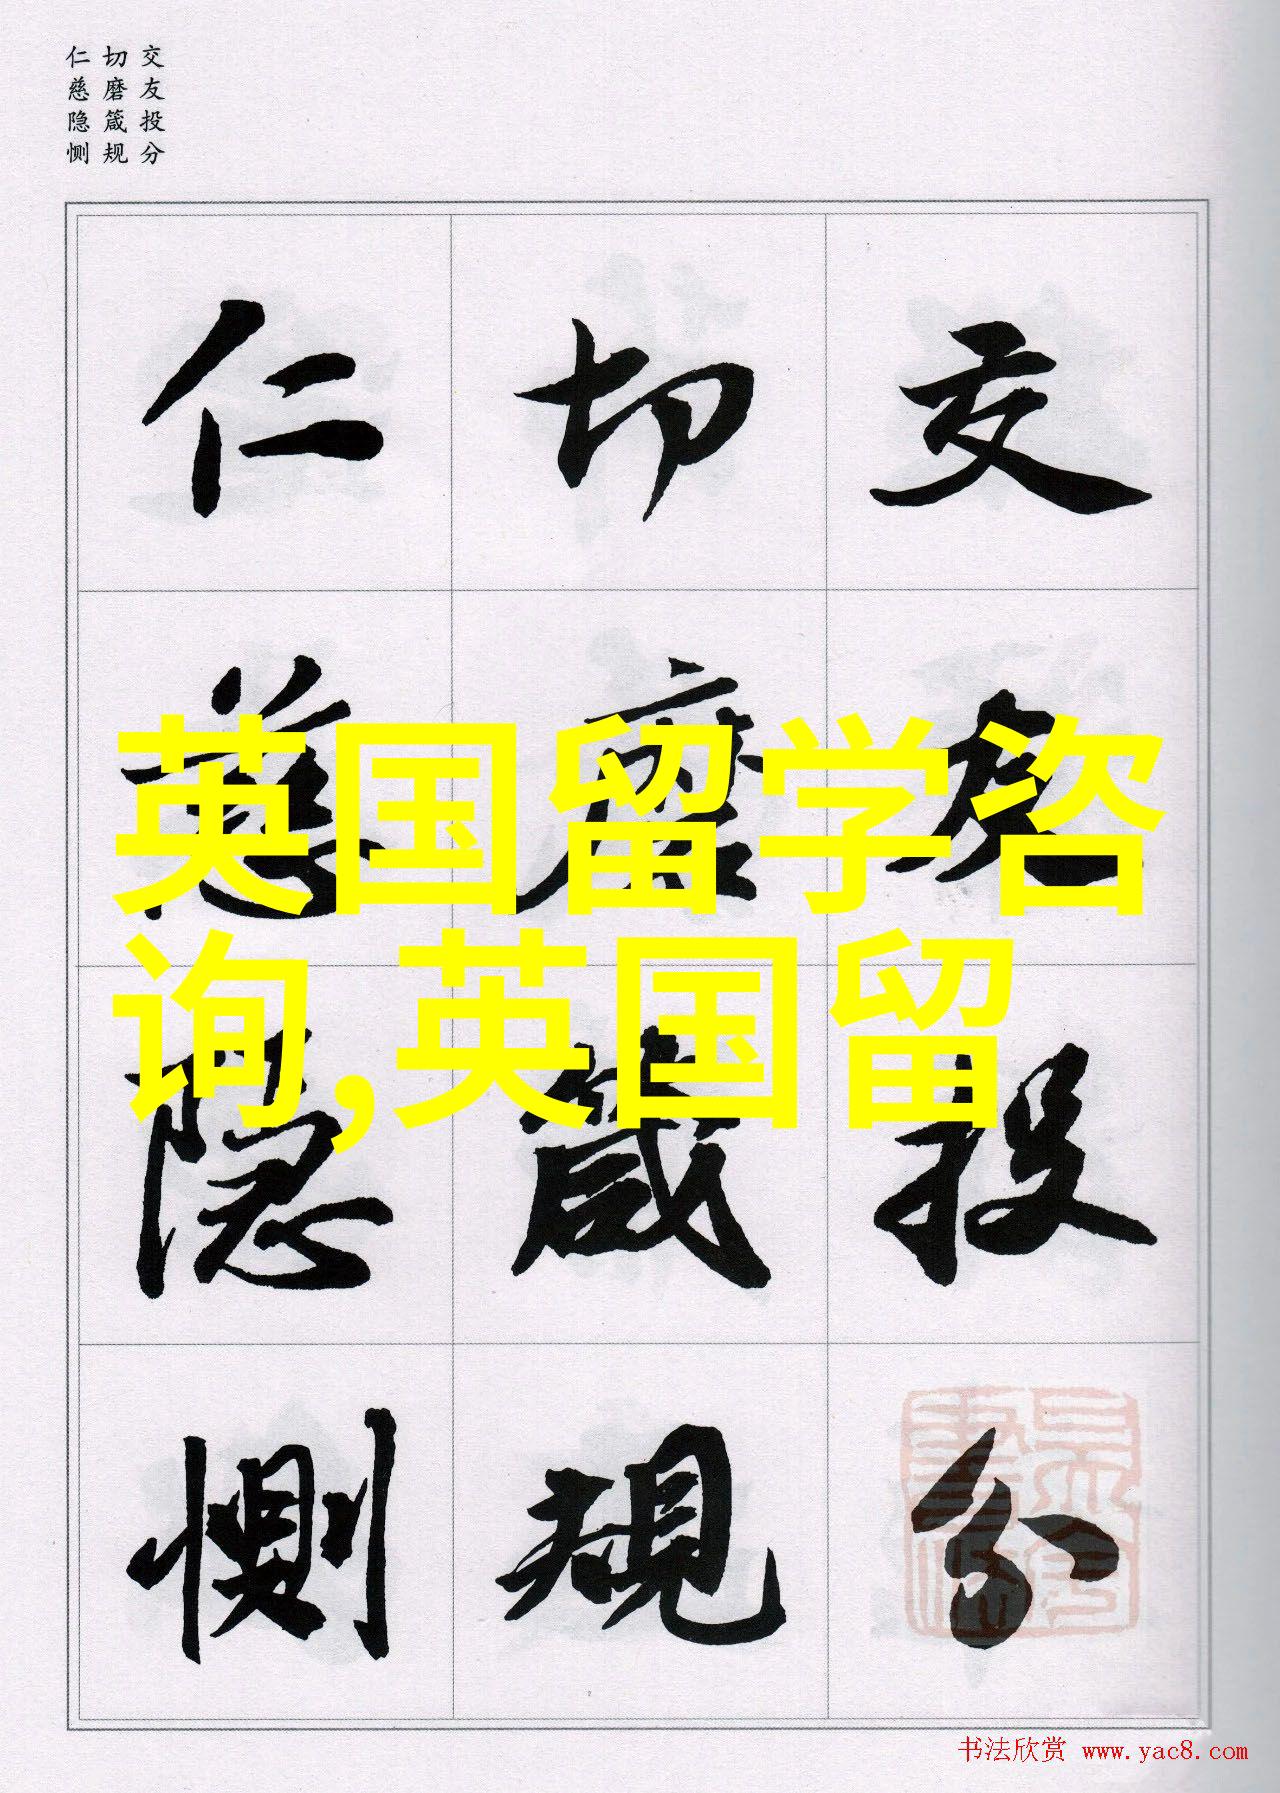 交友投分
切磨箴规
仁慈隐恻
交友投分
切磨箴規
仁慈隐恻
英国留学咨
询,英国留
书法欣赏 www.yac8.com